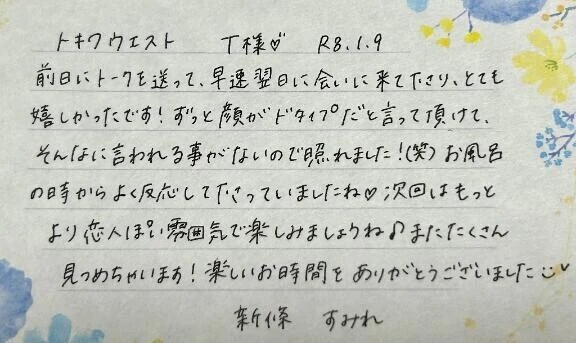 トキワウエスト T様♡ R8.1.9
前日にトークを送って、早速翌日に会いに来て下さり、とても
嬉しかったです！ずっと顔がドタイプだと言って頂けて、
そんなに言われる事がないので照れました！(笑)お風呂
の時からよく反応して下さっていましたね♡次回はもっと
より恋人ぽい雰囲気で楽しみましょうね♪またたくさん
見つめちゃいます！楽しいお時間をありがとうございました
新條 すみれ